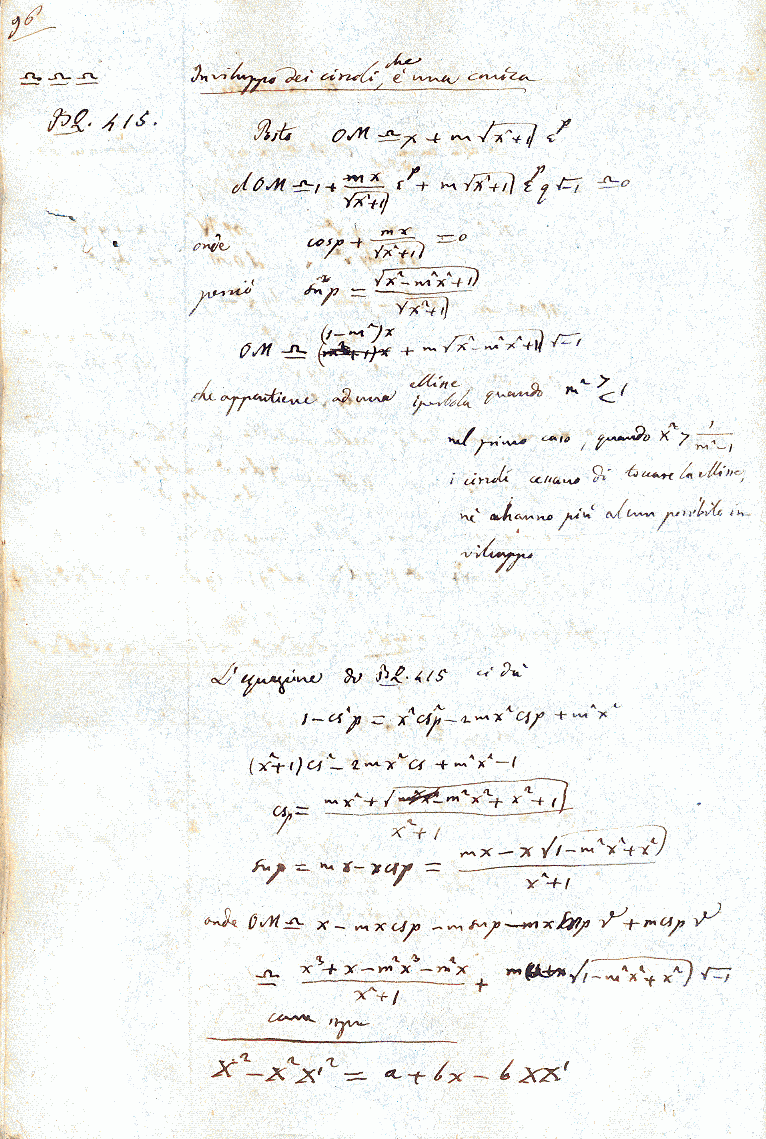 96
≏ ≏ ≏
Inviluppo dei circoli, che è una conica
BQ. 415.
Posto OM ≏ x + m √(x²+1) ε^p
dOM ≏ 1 + mx/√(x²+1) ε^p + m √(x²+1) ε^p q √-1 ≏ 0
onde cos p + mx/√(x²+1) = 0
perciò sin p = √(x²-m²x²+1) / √(x²+1)
OM ≏ (1-m²)x + m √(x²-m²x²+1) √-1
che appartiene ad una ellisse iperbola quando m² > < 1
nel primo caso, quando x² > 1/(m²-1)
i circoli cessano di toccare la ellisse,
nè hanno più alcun possibile in-
viluppo
L'equazione di BQ. 415 ci dà
1 - cs²p = x²cs²p - 2mx²csp + m²x²
(x²+1)cs² - 2mx²cs + m²x² - 1
csp = (mx² + √(-m²x² + x² + 1)) / (x²+1)
snp = mx - xcsp = (mx - x√(1-m²x²+x²)) / (x²+1)
onde OM ≏ x - mxcsp - msnp - mx snp √ + mcsp √
≏ (x³+x-m²x³-m²x)/(x²+1) + m √(1-m²x²+x²) √-1
come sopra
X² - X²X'² = a + bx - bXX'